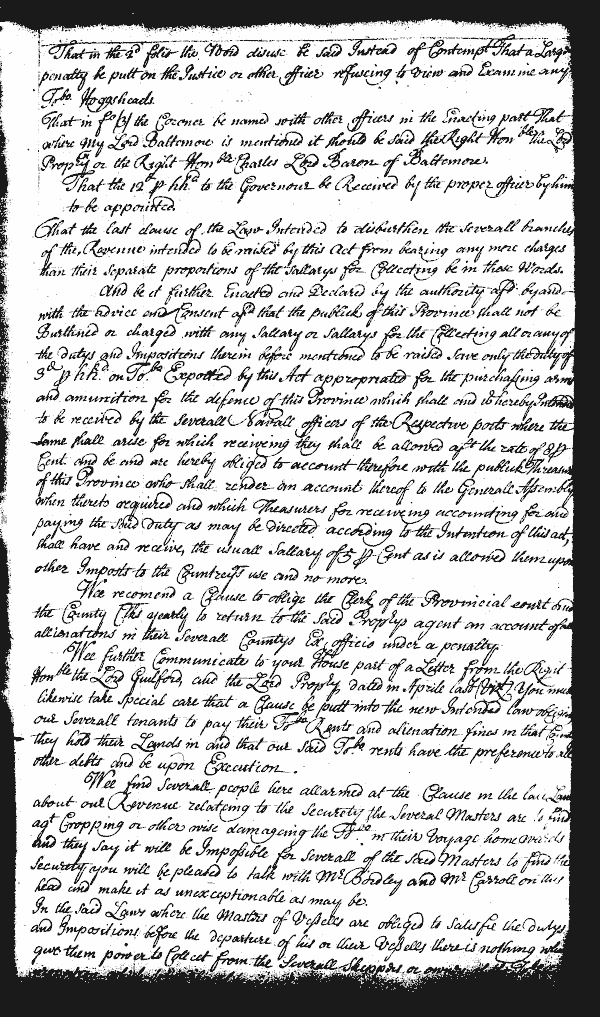 That in the 2d folio the Word disuse be said Instead of Contempt That a Large
penalty be put on the Justice or other officer refuseing to view and Examine any
Tobo. Hogsheads
That in fo. (3) the Coroner be named with other officers in the Enacting part That
where My Lord Baltemore is mentioned it should be said the Right Honble the Lord
Propry or the Right Honble Charles Lord Baron of Baltemore.
That the 12d p hhd to the Governour be Received by the proper officer by him
to be appointed.
That the last clause of the Law Intended to disburthen the severall branches
of the Revenue intended to be raised by this Act from bearing any more charges
than their separate proportions of the Sallarys for Collecting be in these Words.
And be it further Enacted and Declared by the authority afd by and
with the advice and Consent afd that the publick of this Province shall not be
Burthned or charged with any Sallary or Sallarys for the Collecting all or any of
the dutys and Impositions therein before mentioned to be raised save only the duty of
3d p hhd on Tobo. Exported by this Act appropriated for the purchasing arms
and amunition for the defence of this Province which shall and is hereby Intended
to be received by the severall Navall officers of the Respective ports where the
same shall arise for which receiveing they shall be allowed aft the rate of p
Cent and be and are hereby obliged to account therefore with the publick Threasurs
of this Province who shall render an account thereof to the Generall Assembly
when thereto required and which Theasurers for receiveing accounting for and
paying the said duty as may be directed according to the Intention of this act,
shall have and receive the usuall Sallary of 5 p Cent as is allowed them upon
other Imposts to the Countreys use and no more.
Wee recomend a Clause to oblige the Clerk of the Provincial court and
the County Clks yearly to return to the said Proprys agent an account of
allienations in their severall Countys Ex officio under a penalty.
Wee further Communicate to your House part of a Letter from the Right
Honble the Lord Guilford, and the Lord Propry dated in Aprile last (Vizt) You must
likewise take Special care that a Clause be putt into the new Intended law obliging
our Severall tenants to pay their Tobo. Rents and alienation fines in that
they hold their Lands in and that our said Tobo. rents have the preference to all
other debts and be upon Execution.
Wee find severall people here allarmed at the Clause in the Law
about our Revenue relateing to the security the Several Masters are to find
agt Cropping or other wise damageing the Tobo. in their Voyage home wards
And they say it will be Impossible for severall of the said Masters to find the
Security you will be pleased to talk with Mr Bordley and Mr Carroll on this
head and make it as unexceptionable as may be.
In the said Laws where the Masters of Vessells are obliged to satisfie the dutys
and Impositions before the departure of his or their Vessells there is nothing
give them power to Collect from the severall Skippers or